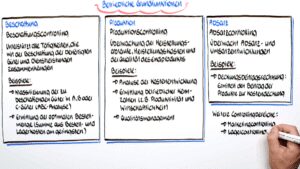 Betriebliche Grundfunktionen
Beschaffung
Beschaffungscontrolling
Unterstützt alle Tätigkeiten, die
mit der Beschaffung der benötigten
Güter und Dienstleistungen
zusammenhängen
Beispiele:
→ Klassifizierung der zu
beschaffenden Güter in A, B oder
C-Güter (ABC-Analyse)
→ Ermittlung der optimalen Bestell-
menge (Summe aus Bestell- und
Lagerkosten am geringsten)
Produktion
Produktionscontrolling
Überwachung der Herstellungs-
abläufe, Herstellungskosten und
der Qualität des Endproduktes
Beispiele:
→ Analyse der Kostenentwicklung
→ Ermittlung betrieblicher Kenn-
zahlen (z.B. Produktivität und
Wirtschaftlichkeit)
→ Qualitätsmanagement
Absatz
Absatzcontrolling
Überwacht Absatz- und
Umsatzentwicklungen
Beispiele:
→ Deckungsbeitragsrechnung:
Ermitteln den Beitrag der
Produkte zur Kostendeckung
Weitere Controllingbereiche:
→ Marketingcontrolling
→ Lagercontrolling